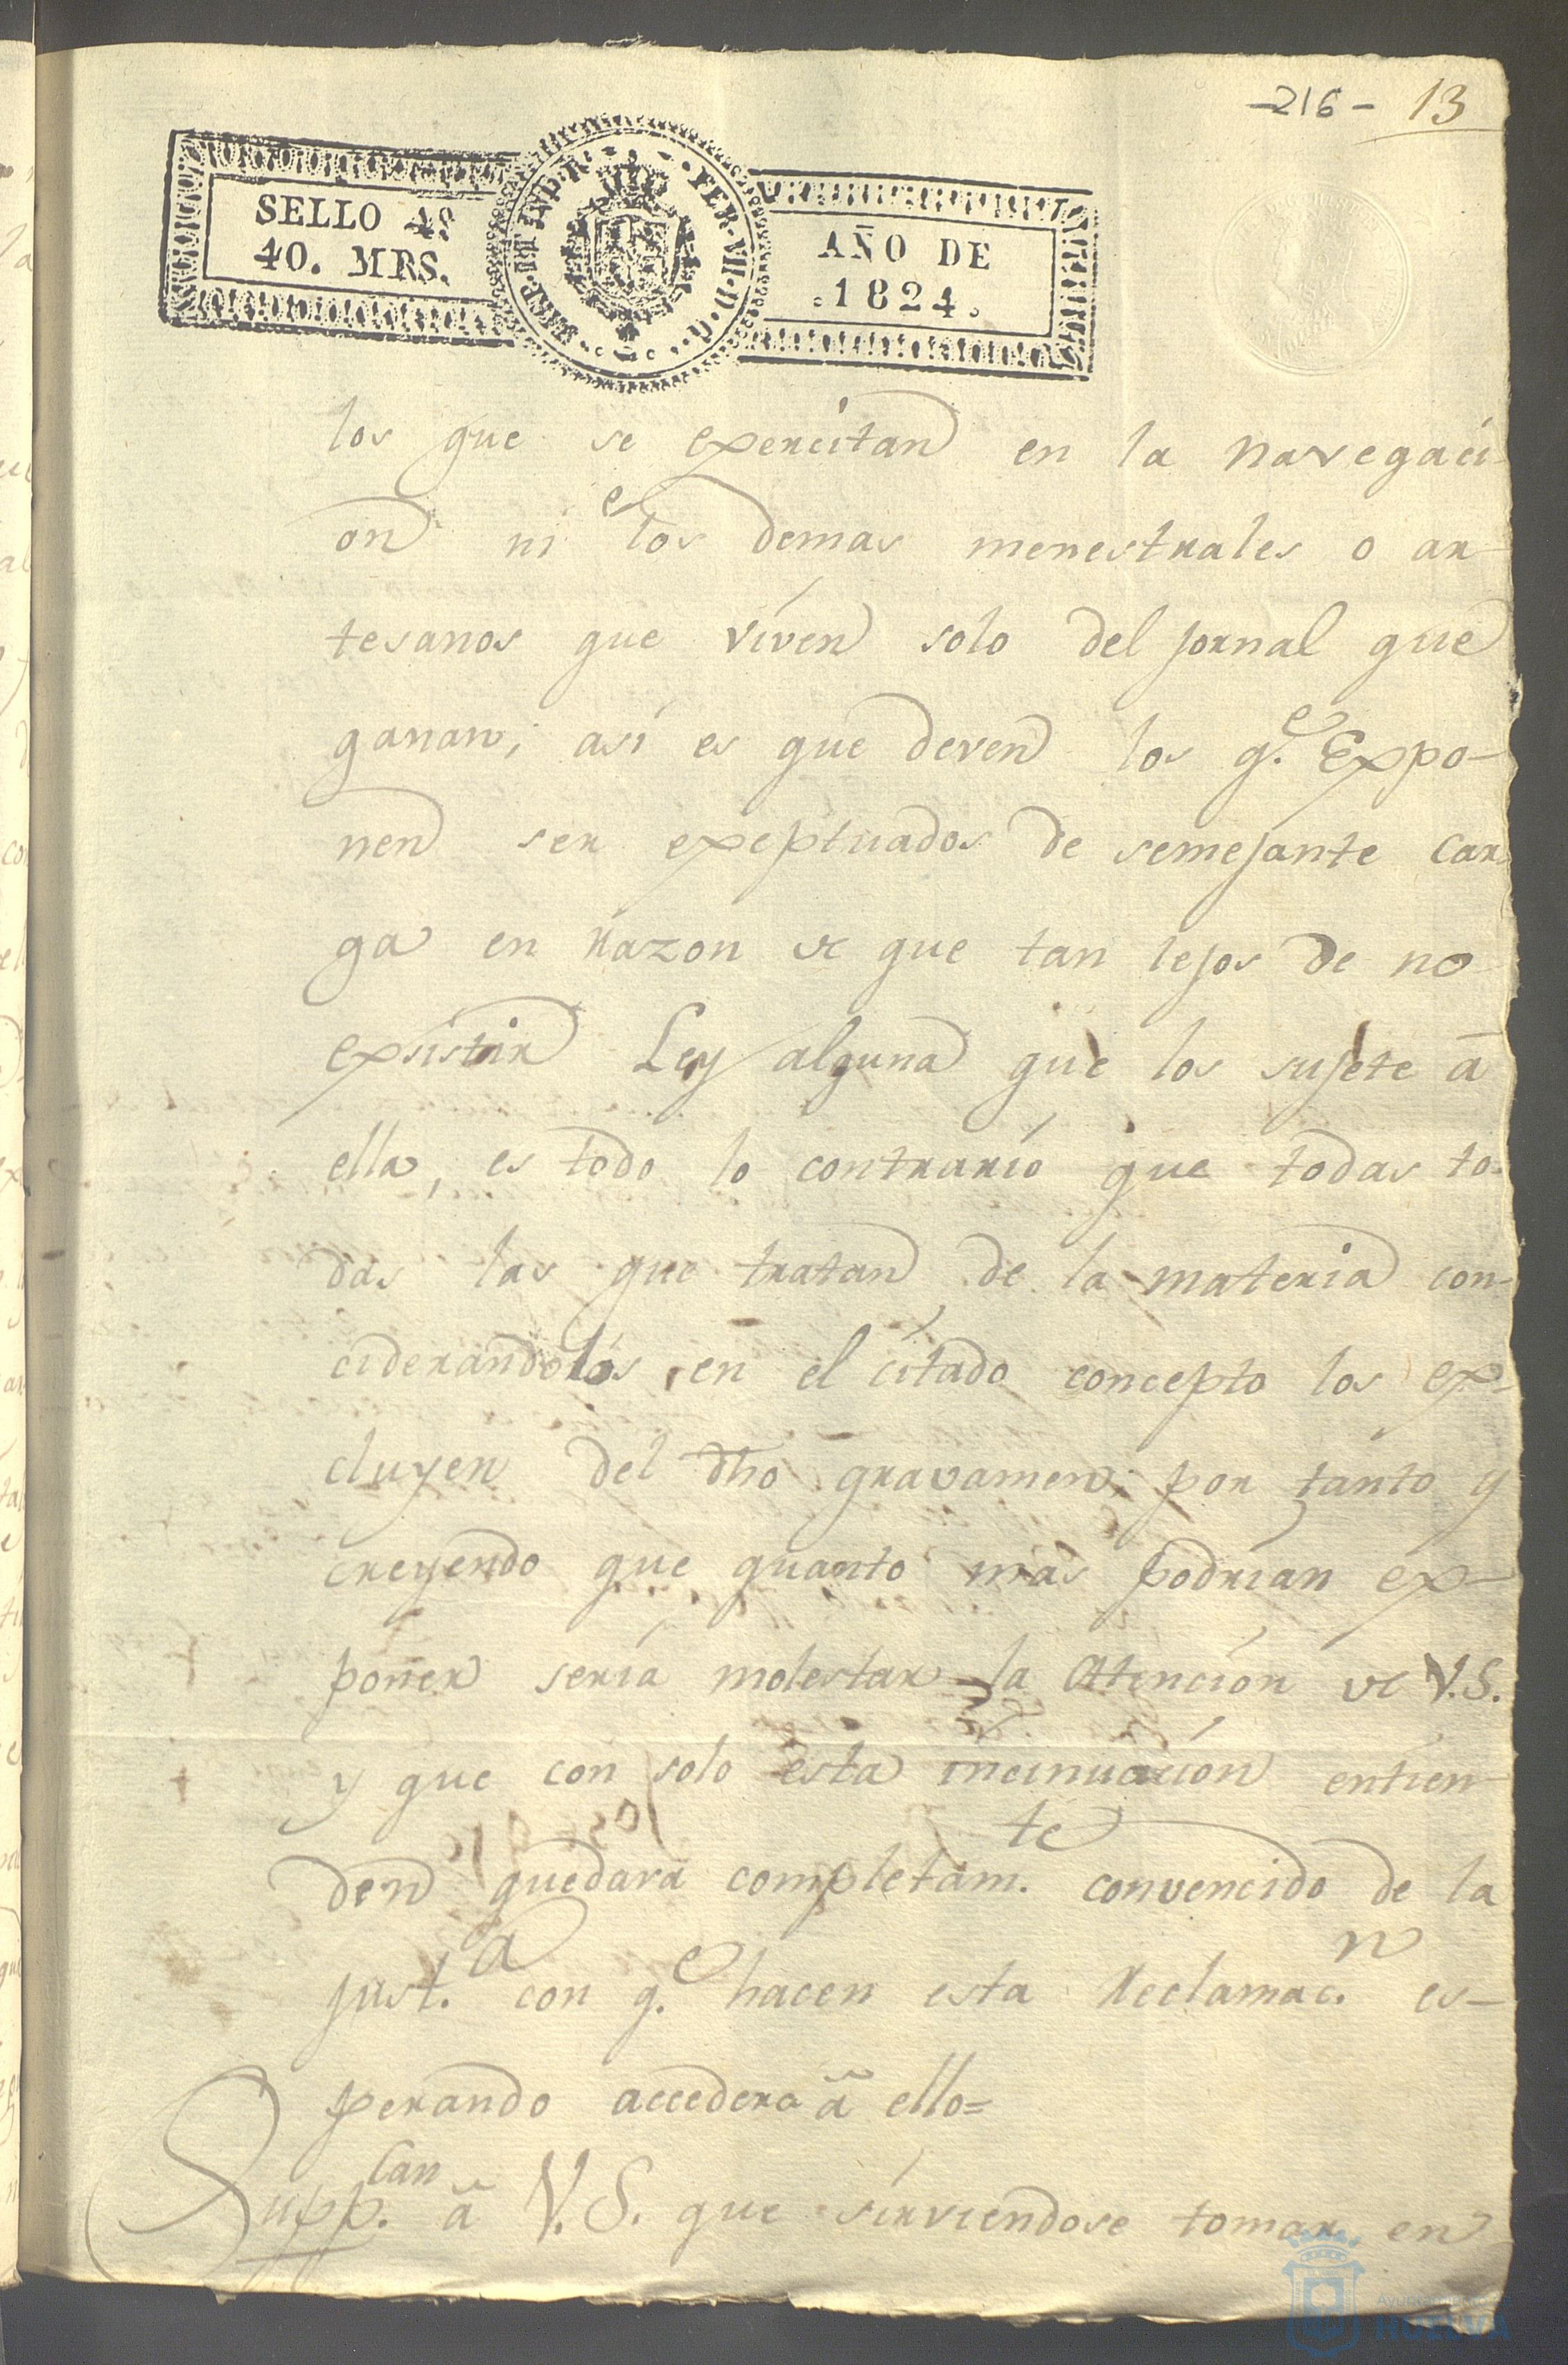 -216- 13
SELLO 4º
40. MRS.
HISP. ET IND. R. FER. VII. D. G.
AÑO DE
.1824.
los que se exercitan en la navegaci-
on ni e los demas menestrales o ar-
tesanos que viven solo del jornal que
ganan; asi es que deven los q.e Expo-
nen ser exeptuados de semejante car-
ga en razon de que tan lejos de no
exsistir Ley alguna que los sujete á
ella, es todo lo contrario que todas to-
das las que tratan de la materia con-
ciderandolos en el citado concepto los ex-
cluyen del dho gravamen; por tanto y
creyendo que quanto mas podrian ex-
poner seria molestar la Atencion de V.S.
y que con solo esta incinuacion entien-
den quedara completam.te convencido de la
just.a con q.e hacen esta Reclamac.n es-
perando accedera á ello=
Supp.can á V.S. que sirviendose tomar en
Ayuntamiento de
HUELVA